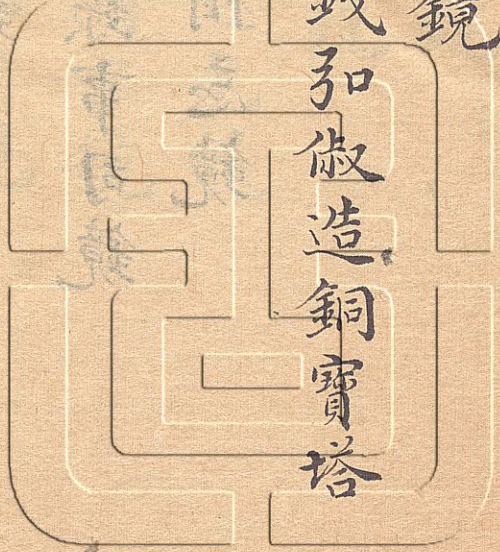 鏡
錢弘俶造銅寶塔